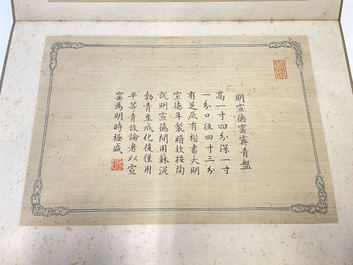 明宣德窰霽青盤
高一寸四分深一寸
一分口徑四寸三分
有足底有楷書大明
宣德年製暗款按陶
說明宣德間用蘇泥
勃青至成化後僅用
平等青故論者以宣
窰為明時極盛